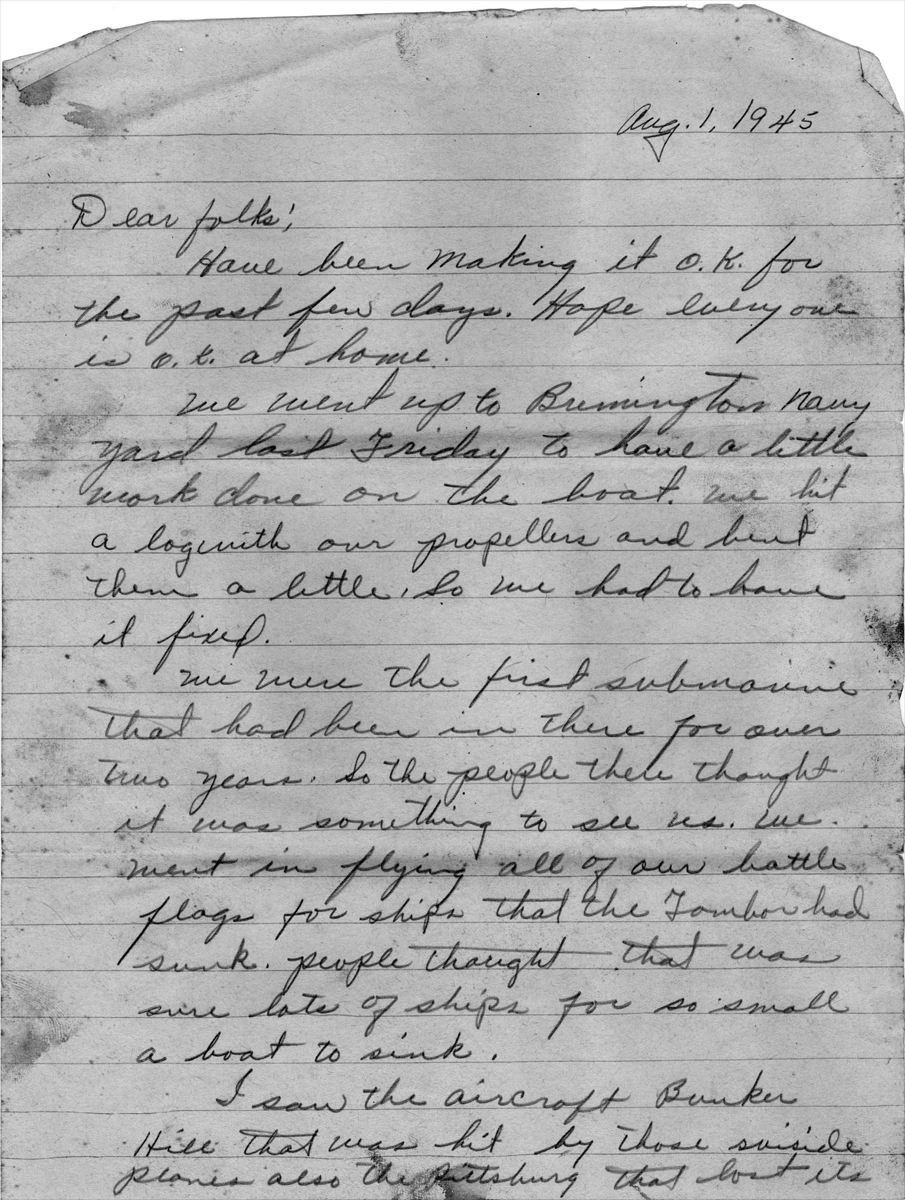 Aug. 1, 1945
Dear folks;
Have been making it O.K. for
the past few days. Hope everyone
is O.K. at home.
We went up to Bremington Navy
Yard last Friday to have a little
work done on the boat. We hit
a log with our propellers and bent
them a little. So we had to have
it fixed.
We were the first submarine
that had been in there for over
two years. So the people there thought
it was something to see us. We
went in flying all of our battle
flags for ships that the Tambor had
sunk. people thought that was
sure lots of ships for so small
a boat to sink.
I saw the aircraft Bunker
Hill that was hit by those suiside
planes also the Pittsburg that lost its